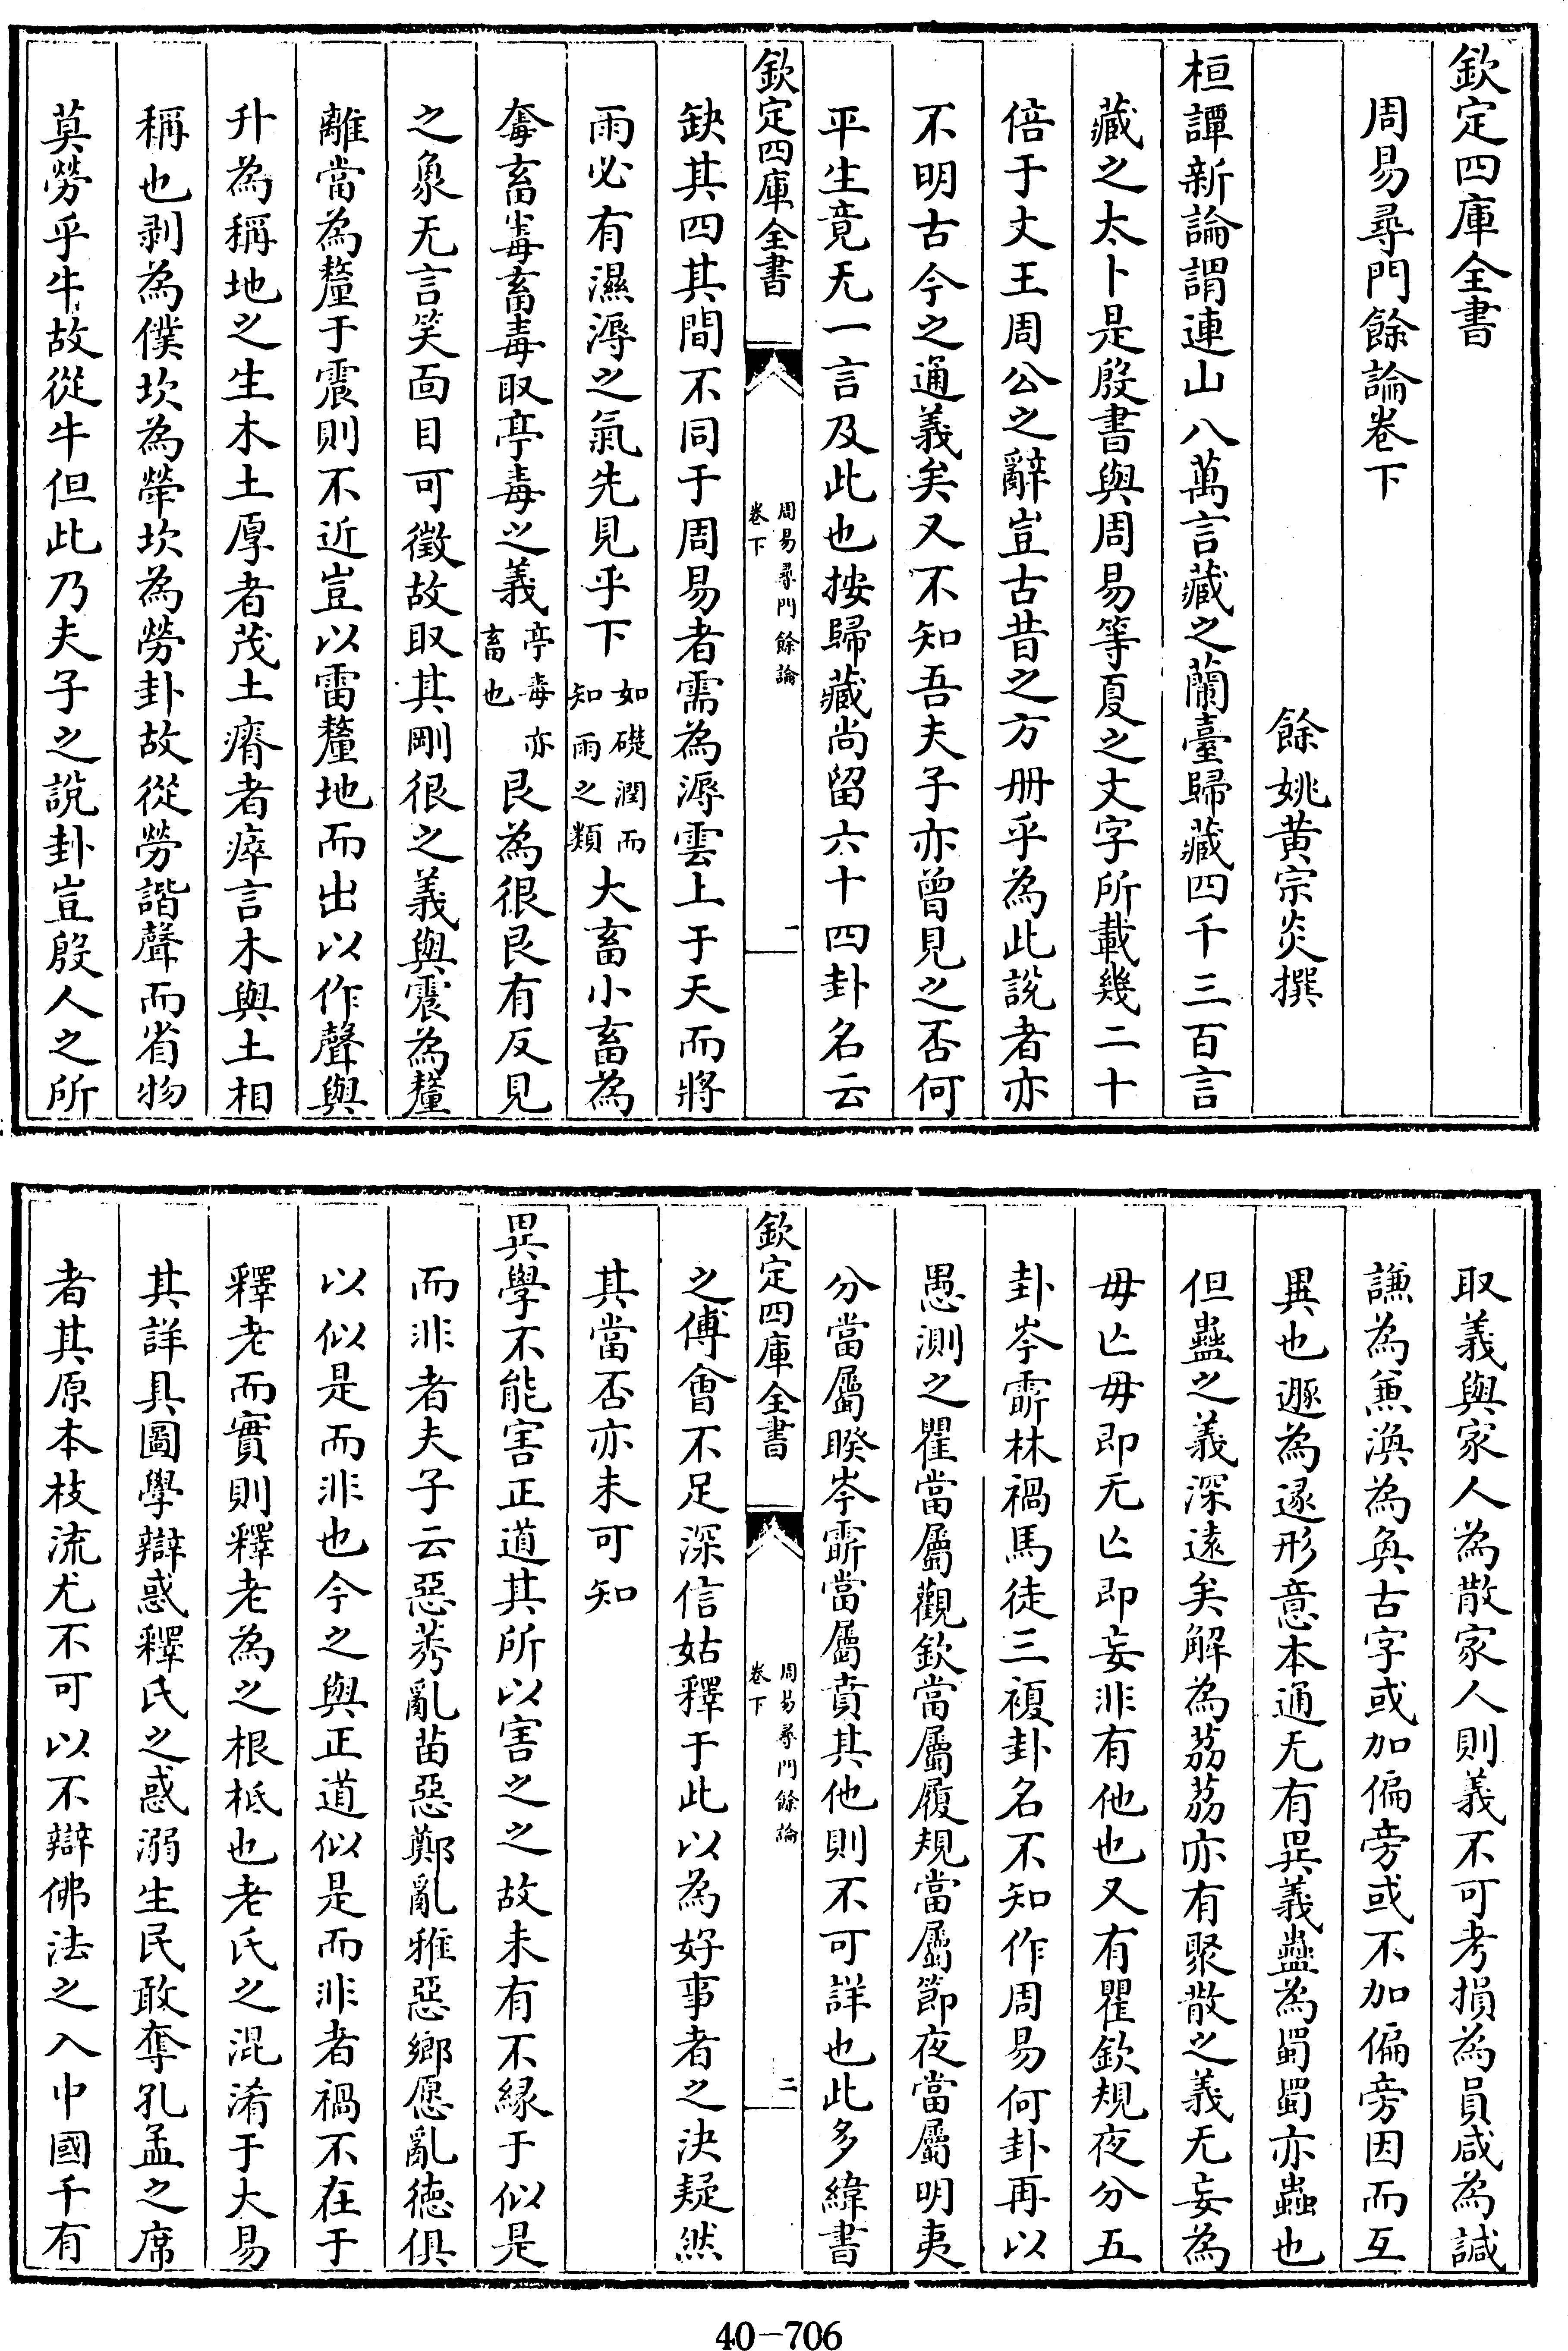 欽定四庫全書
周易尋門餘論卷下
餘姚黄宗炎撰
桓譚新論謂連山八萬言藏之蘭臺歸藏四千三百言
藏之太卜是殷書與周易等夏之文字所載幾二十
倍于文王周公之辭豈古昔之方册乎為此說者亦
不明古今之通義矣又不知吾夫子亦曾見之否何
平生竟无一言及此也按歸藏尚留六十四卦名云
欽定四庫全書
周易尋門餘論
卷下
一
缺其四其間不同于周易者需為溽雲上于天而將
雨必有濕溽之氣先見乎下如礎潤而知雨之類大畜小畜為
奪畜毒畜毒取亭毒之義亭毒亦畜也艮為很艮有反見
之象无言笑面目可徵故取其剛很之義與震為釐
離當為釐于震則不近豈以雷釐地而出以作聲與
升為稱地之生木土厚者茂土瘠者瘁言木與土相
稱也剥為僕坎為犖坎為勞卦故從勞諧聲而省物
莫勞乎牛故從牛但此乃夫子之說卦豈殷人之所
取義與家人為散家人則義不可考損為員咸為諴
謙為兼渙為奐古字或加偏旁或不加偏旁因而互
異也遯為逐形意本通无有異義蠱為蜀蜀亦蟲也
但蠱之義深遠矣解為荔荔亦有聚散之義无妄為
毋亾毋即无亾即妄非有他也又有瞿欽規夜分五
卦岑䨏林禍馬徒三複卦名不知作周易何卦再以
愚測之瞿當屬觀欽當屬履規當屬節夜當屬明夷
分當屬睽岑䨏當屬賁其他則不可詳也此多緯書
欽定四庫全書
周易尋門餘論
卷下
二
之傅會不足深信姑釋于此以為好事者之決疑然
其當否亦未可知
異學不能害正道其所以害之之故未有不緣于似是
而非者夫子云惡莠亂苗惡鄭亂雅惡鄉愿亂德俱
以似是而非也今之與正道似是而非者禍不在于
釋老而實則釋老為之根柢也老氏之混淆于大易
其詳具圖學辯惑釋氏之惑溺生民敢奪孔孟之席
者其原本枝流尤不可以不辯佛法之入中國千有
40-706